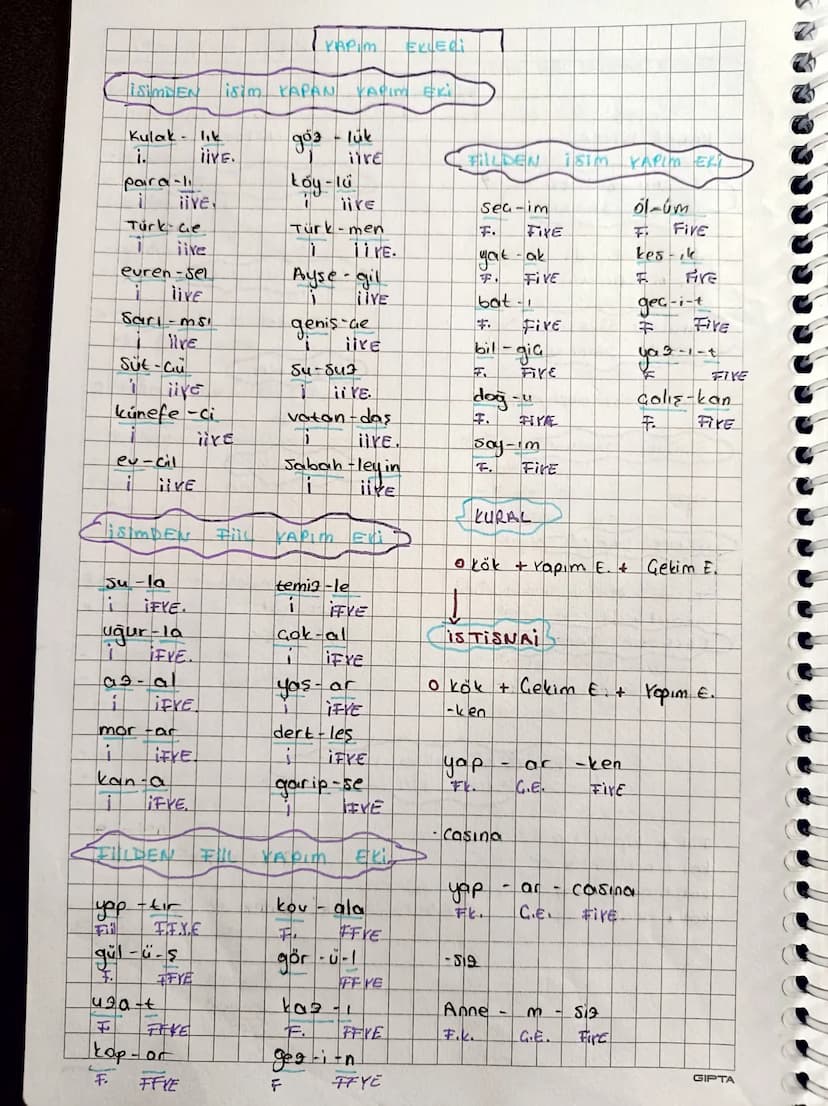 YAPIM EKLERİ
İSİMDEN İSİM YAPAN YAPIM EKİ
kulak - lık göz - lük
i. İİYE. i İİYE
para - lı köy - lü
i İİYE. i İİYE
Türk - çe Türk - men
i İİYE i İİYE.
evren - sel Ayşe - gil
i İİYE i İİYE
sarı - msı geniş - çe
i İİYE i İİYE
süt - çü su - suz
i İİYE i İİYE.
künefe - ci vatan - daş
i İİYE i İİYE.
ev - cil sabah - leyin
i İİYE i İİYE
İSİMDEN FİİL YAPIM EKİ
su - la temiz - le
i İFYE. i İFYE
uğur - la çok - al
i İFYE. i İFYE
az - al yaş - ar
i İFYE. i İFYE
mor - ar dert - leş
i İFYE. i İFYE
kan - a garip - se
i İFYE. i İFYE
FİİLDEN FİİL YAPIM EKİ
yap - tır kov - ala
Fiil F.F.Y.E F. FFYE
gül - ü - ş gör - ü - l
F. FFYE FFYE
uza - t kaz - ı
F FFYE F. FFYE
kop - ar gez - i - n
F. FFYE F FFYE
FİİLDEN İSİM YAPIM EKİ
seç - im öl - üm
F. FİYE F. FİYE
yat - ak kes - ik
F. FİYE F. FİYE
bat - ı geç - i - t
F. FİYE F FİYE
bil - giç yaz - ı - t
F. FİYE F FİYE
doğ - u çalış - kan
F. FİYE F. FİYE
say - ım
F. FİYE
KURAL
kök + Yapım E. + Çekim E.
İSTİSNAİ
kök + Çekim E. + Yapım E.
-ken
yap - ar - ken
Fk. Ç.E. FİYE
- casına
yap - ar - casına
Fk. Ç.E. FİYE
- siz
Anne - m - siz
F.k. Ç.E. FİYE
GIPTA